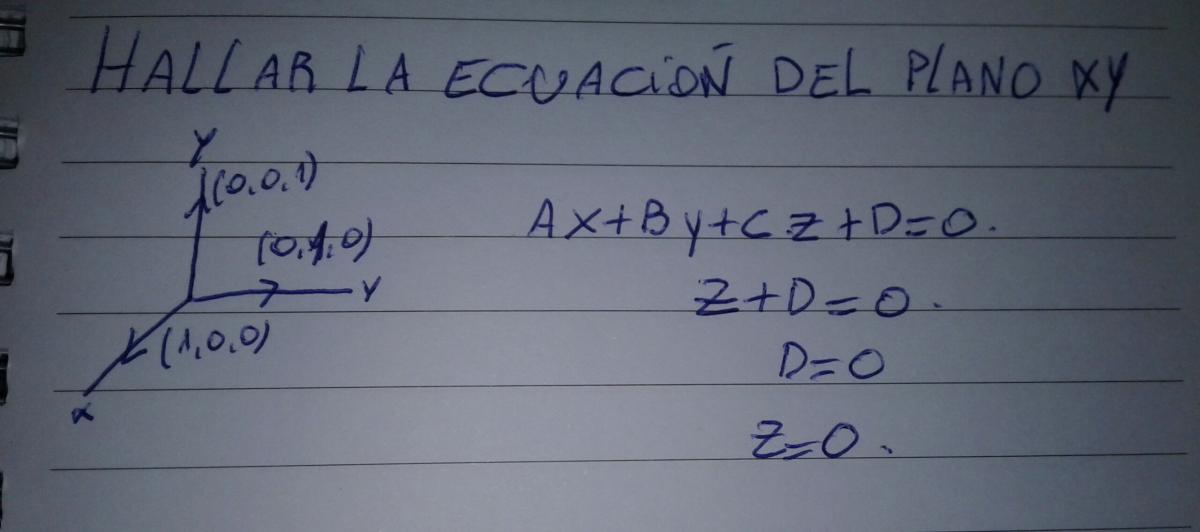 HALLAR LA ECUACIÓN DEL PLANO XY
Y
(0,0,1)
(0,1,0)
Y
(1,0,0)
x
Ax+By+Cz+D=0.
Z+D=0.
D=0
Z=0.